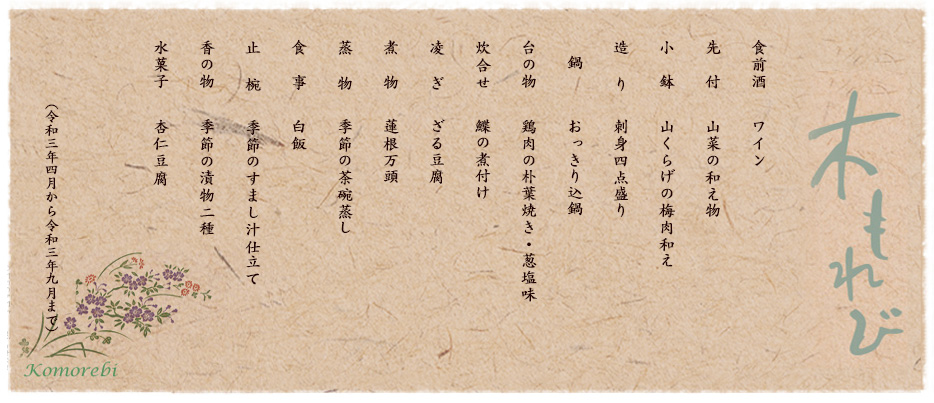 木もれび
食前酒 ワイン
先付 山菜の和え物
小鉢 山くらげの梅肉和え
造り 刺身四点盛り
鍋 おっきり込鍋
台の物 鶏肉の朴葉焼き・葱塩味
炊合せ 鰈の煮付け
凌ぎ ざる豆腐
煮物 蓮根万頭
蒸物 季節の茶碗蒸し
食事 白飯
止椀 季節のすまし汁仕立て
香の物 季節の漬物二種
水菓子 杏仁豆腐
(令和三年四月から令和三年九月まで)
Komorebi